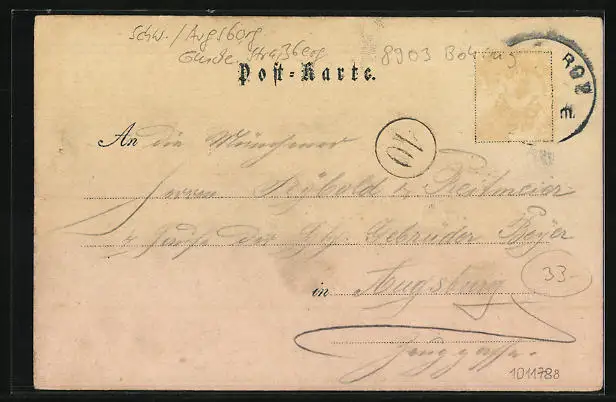 Schw. / Augsburg
Straßberg
8903 Bobing
Post-Karte.
An die Münchener
10
Herren Rebold & Reitmeier
z. der Gebrüder Beyer
33-
in Augsburg
Zeuggasse.
1011788